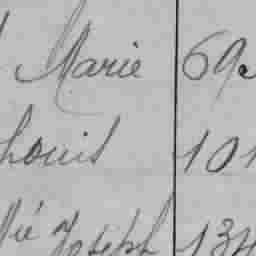 Marie 69
Louis 101
Joseph 134